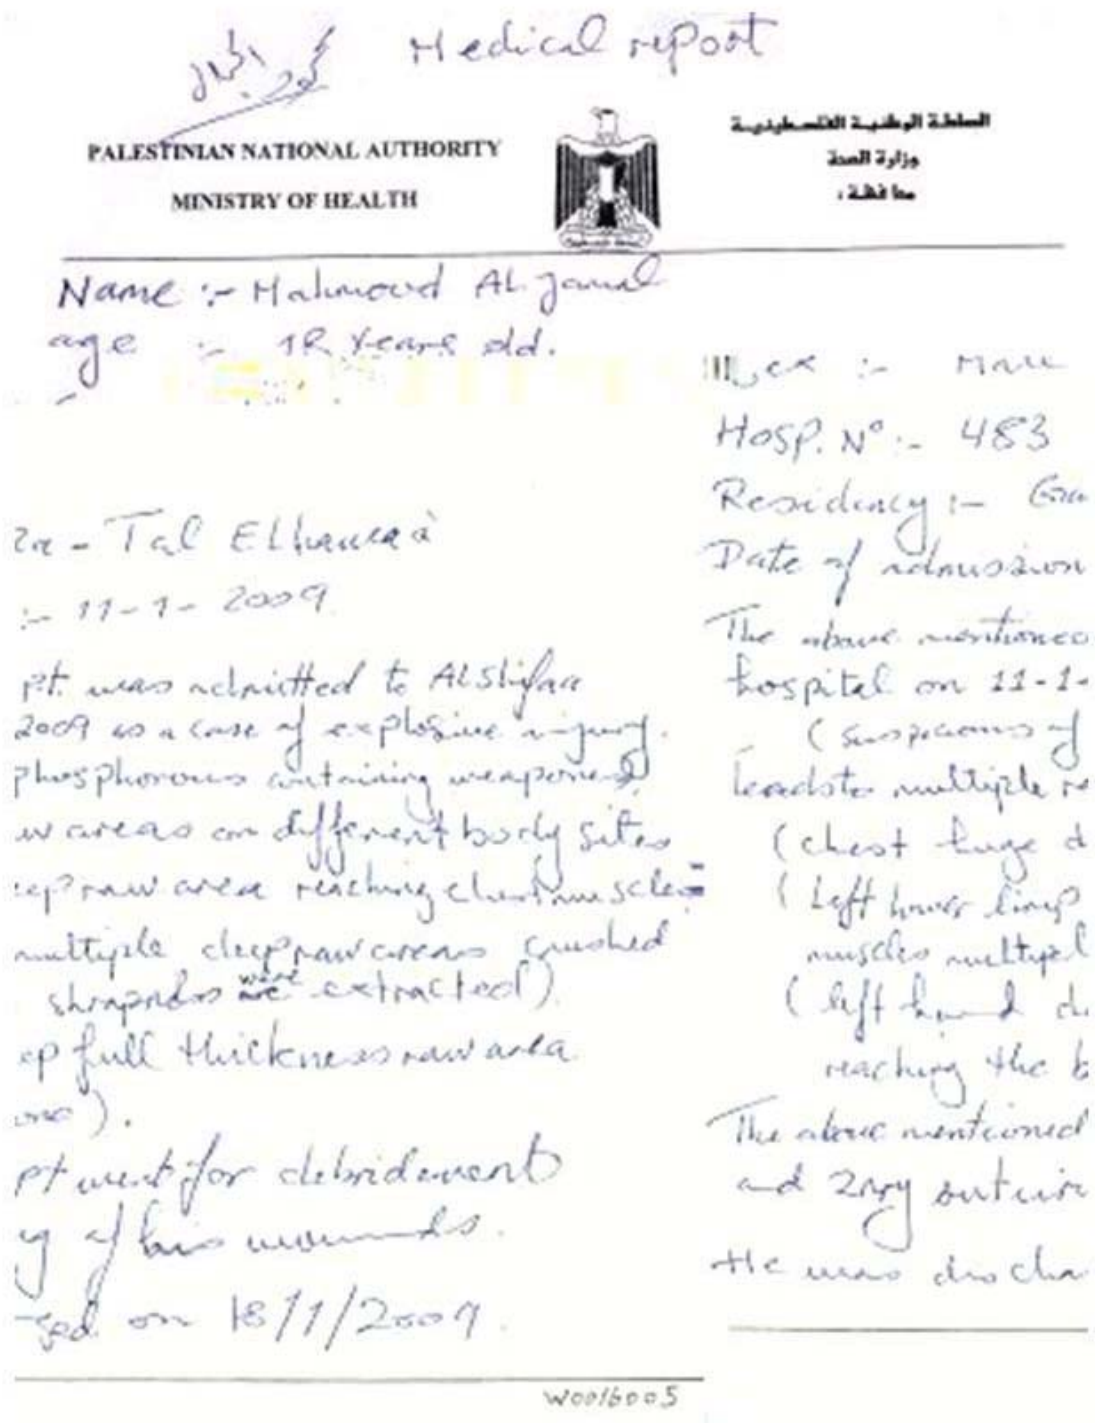 محمود الجمل
Medical report
PALESTINIAN NATIONAL AUTHORITY
MINISTRY OF HEALTH
السلطة الوطنية الفلسطينية
وزارة الصحة
محافظة :
Name :- Mahmoud Al Jamal
age :- Years old.
za - Tal Elhawaa
:- 11-1-2009
pt. was admitted to AlShifaa
2009 as a case of explosive injury.
phosphorous containing weapones)
w areas on different body sites
eep raw area reaching chest muscles
multiple deep raw areas crushed
shrapnels were extracted)
ep full thickness raw area
one).
pt went for debridement
g of his wounds.
ged on 18/1/2009.
W0016005
sex :- Male
Hosp. N° :- 483
Residency :- Ga
Date of admission
The above mentioned
hospital on 11-1-
(suspicious of
leads to multiple ra
(chest huge d
(left lower limp
muscles multipl
(left hand de
reaching the b
The above mentioned
and 2nry suturin
He was dischar